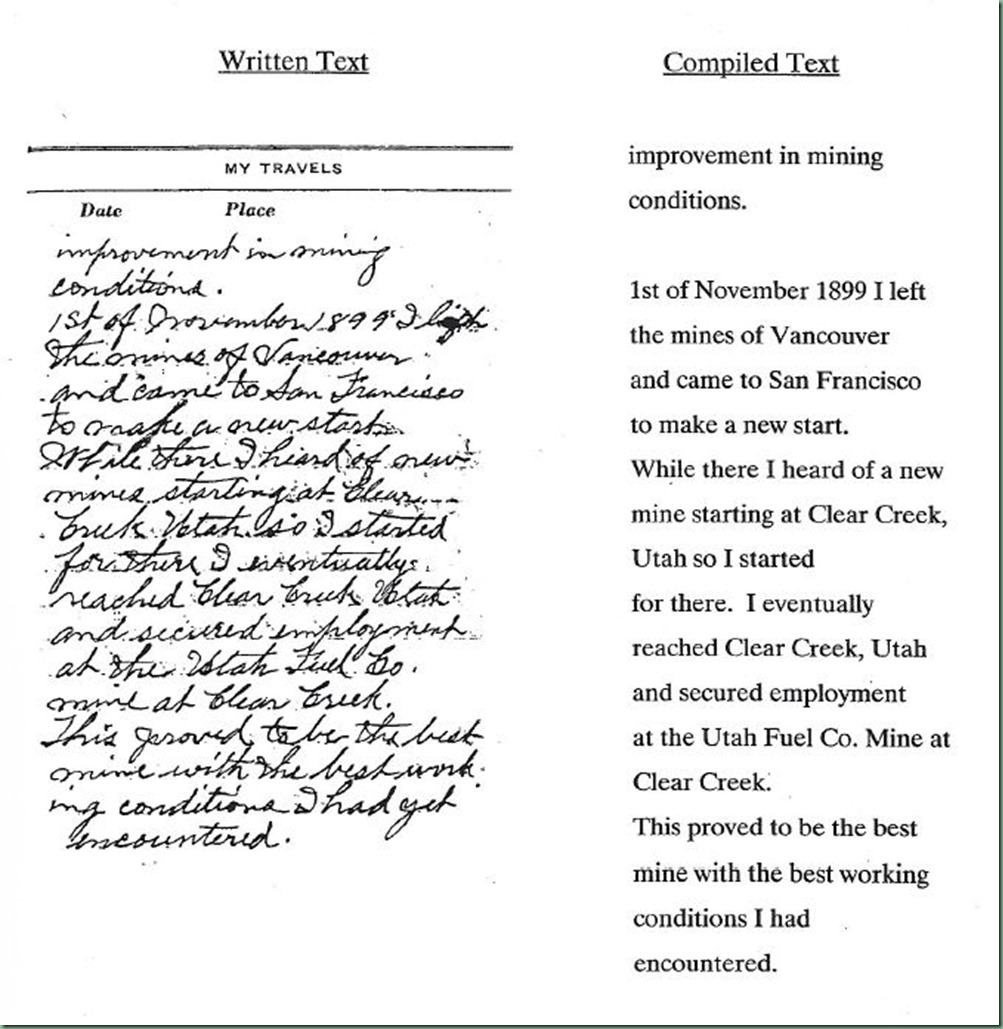 Written Text
MY TRAVELS
Date Place
improvement in mining
conditions.
1st of November 1899 I
the mines of Vancouver
and came to San Francisco
to make a new start.
While there I heard of new
mines starting at Clear
Creek Utah so I started
for there I eventually
reached Clear Creek Utah
and secured employment
at the Utah Fuel Co.
mine at Clear Creek.
This proved to be the best
mine with the best work-
ing conditions I had yet
encountered.
Compiled Text
improvement in mining
conditions.
1st of November 1899 I left
the mines of Vancouver
and came to San Francisco
to make a new start.
While there I heard of a new
mine starting at Clear Creek,
Utah so I started
for there. I eventually
reached Clear Creek, Utah
and secured employment
at the Utah Fuel Co. Mine at
Clear Creek.
This proved to be the best
mine with the best working
conditions I had
encountered.